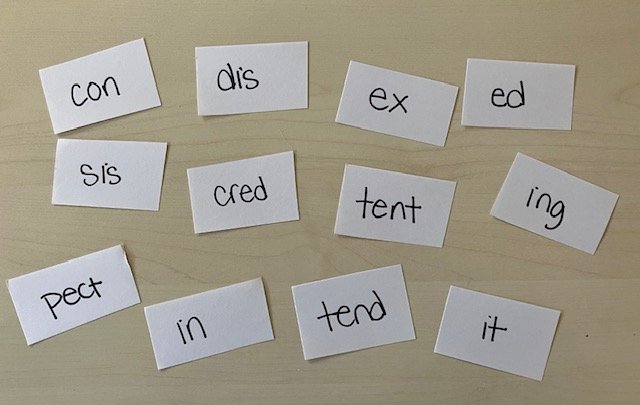 con dis ex ed
sis cred tent ing
pect in tend it